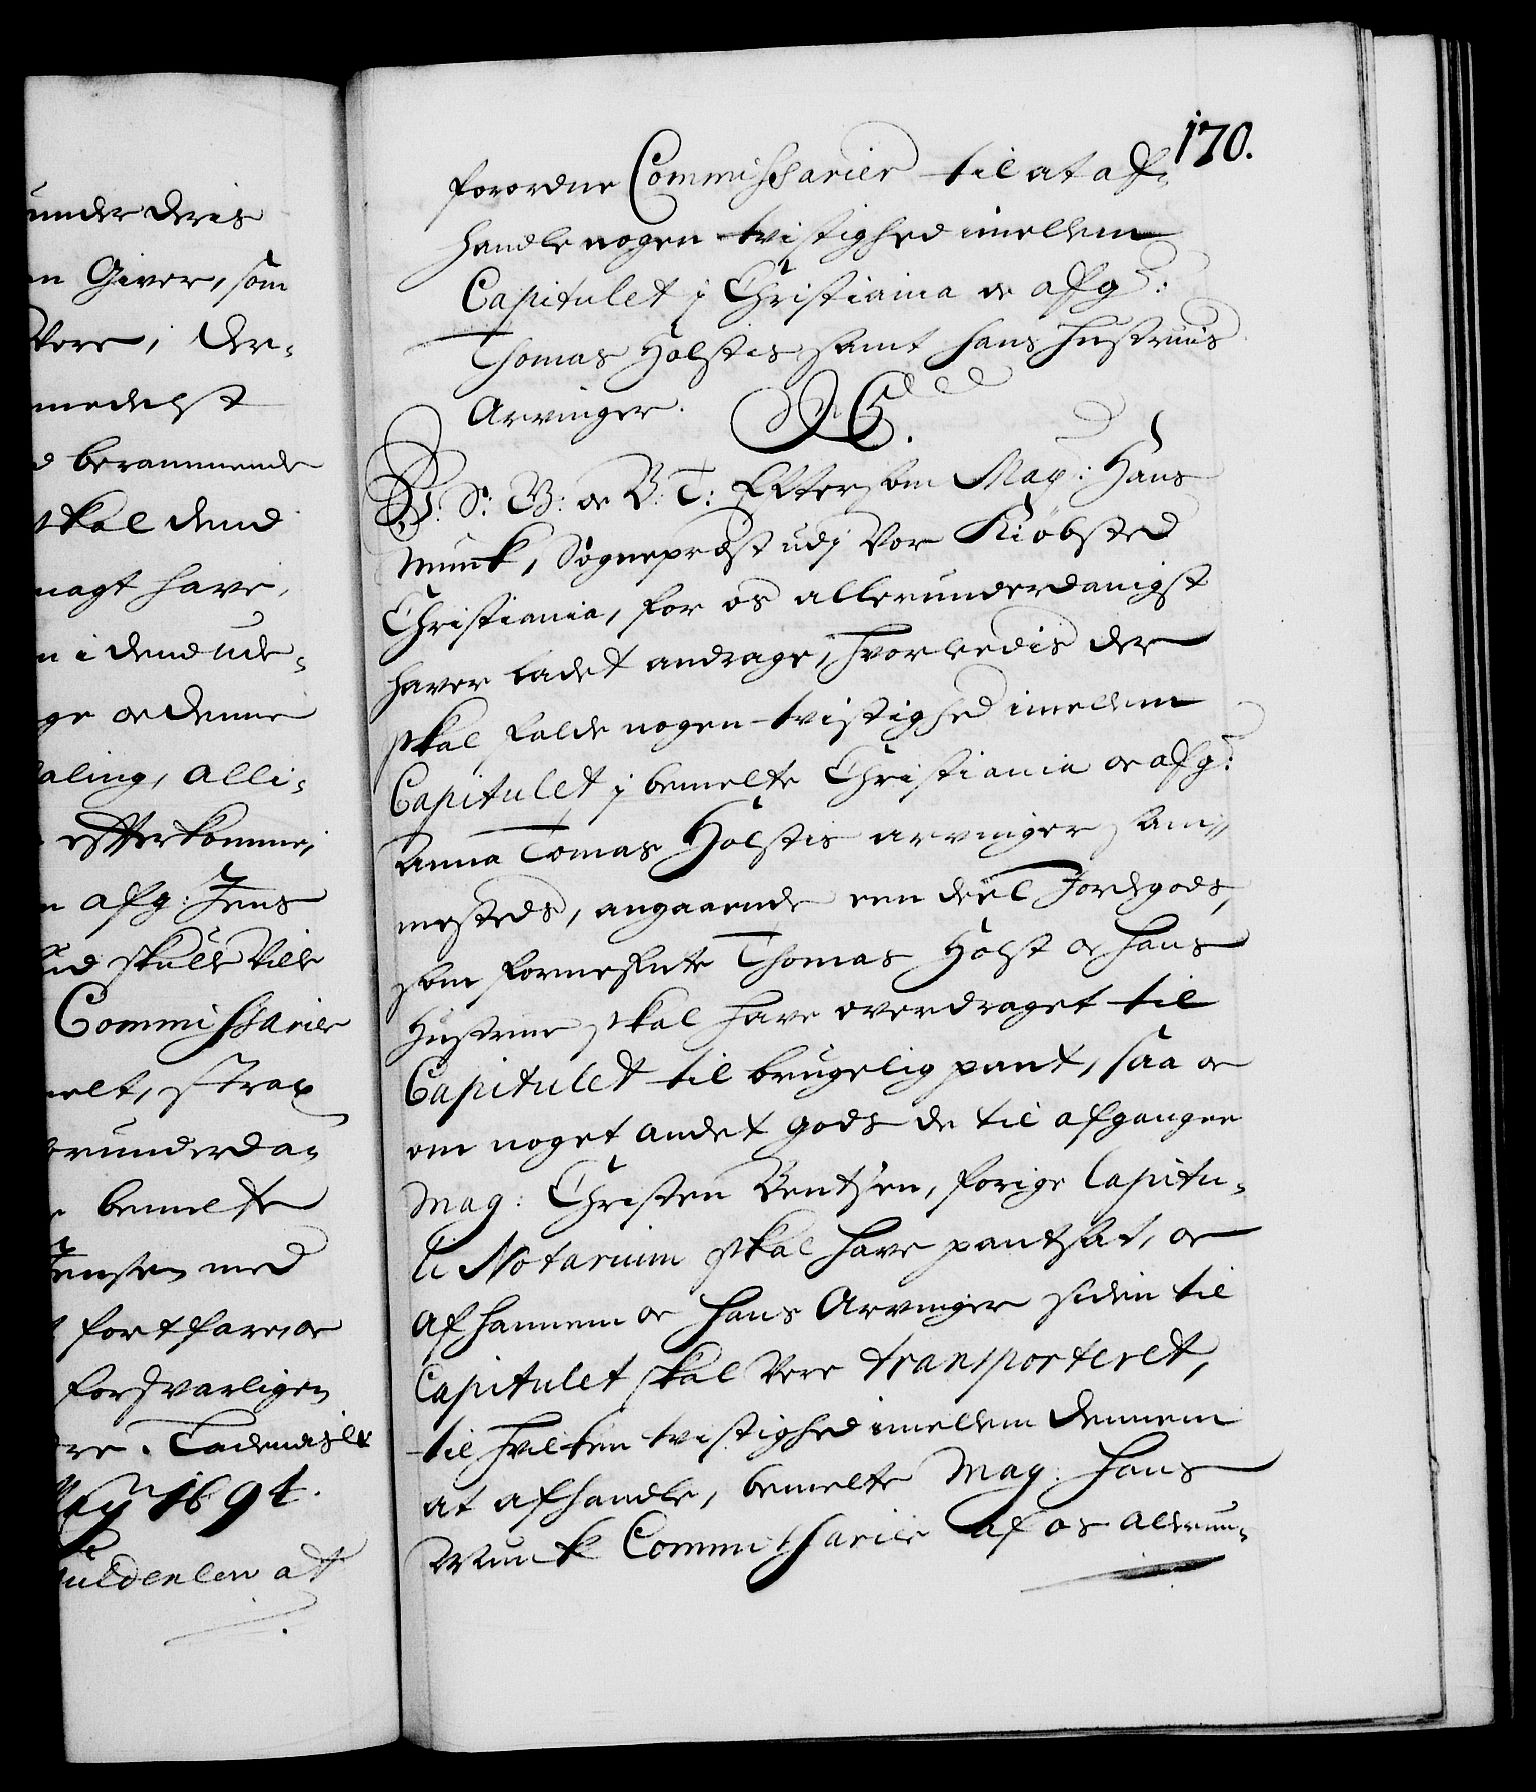 under deris
n Giver, som
Vere, der¬
medelst
d berammende
skal dend
magt have,
n i dend ude¬
ge oc denne
aling, alli¬
efterkomme,
n afg: Jens
ud skulde ville
Commissarier
melt, strax
erunderda¬
bemelte
Jensen med
fortfare, oc
forsvarligen
re. Ladendis &c
May 1691.
uldenlew at
170.
forordne Commissarier til at af¬
handle nogen tvistighed imellem
Capitulet i Christiania oc afg:
Thomas Holstes samt hans Hustruis
Arvinger.
C. G. V. oc V. T: Eftersom Mag: Hans
Munk, Sogneprest udj Vor Kiøbsted
Christiania, for os allerunderdanigst
haver ladet andrage, hvorledis der
skal falde nogen tvistighed imellem
Capitulet i bemelte Christiania oc afg:
Anna Tomas Holstis arvinger sam¬
mesteds, angaaende een deel Jordegods,
som formeente Thomas Holst oc hans
Hustrue skal have overdraget til
Capitulet til brugelig pant, saa oc
om noget andet gods de til afgangne
Mag: Christen Bentsen, forige Capitu¬
li Notarium skal have pantsat, oc
af hannem oc hans Arvinger siden til
Capitulet skal Vere transporteret,
til hvilken tvistighed imellem dennem
at afhandle, bemelte Mag: Hans
Munk Commissarier af os allerun¬